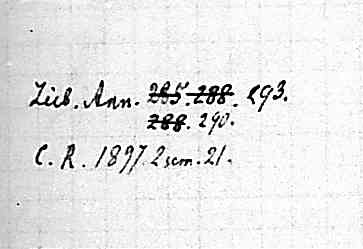 Lieb. Ann. 285. 288. 293.
288. 290.
C. R. 1897. 2 sem. 21.